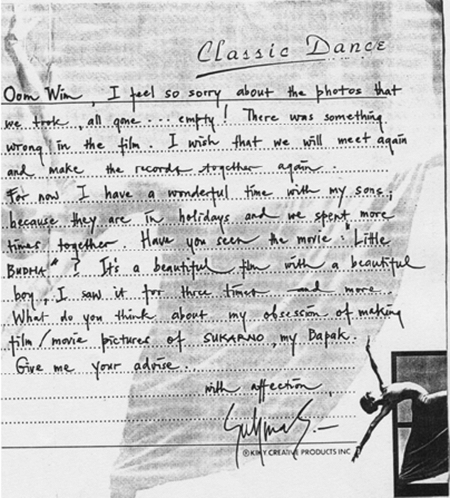 Classic Dance
Oom Wim, I feel so sorry about the photos that
we took, all gone... empty! There was something
wrong in the film. I wish that we will meet again
and make the records together again.
For now I have a wonderful time with my sons;
because they are in holidays and we spent more
times together. Have you seen the movie: "Little
BUDHA"? It's a beautiful film with a beautiful
boy, I saw it for three times and more.
What do you think about my obsession of making
film/movie pictures of SUKARNO, my Bapak.
Give me your advise..
with affection,
© KIKY CREATIVE PRODUCTS INC